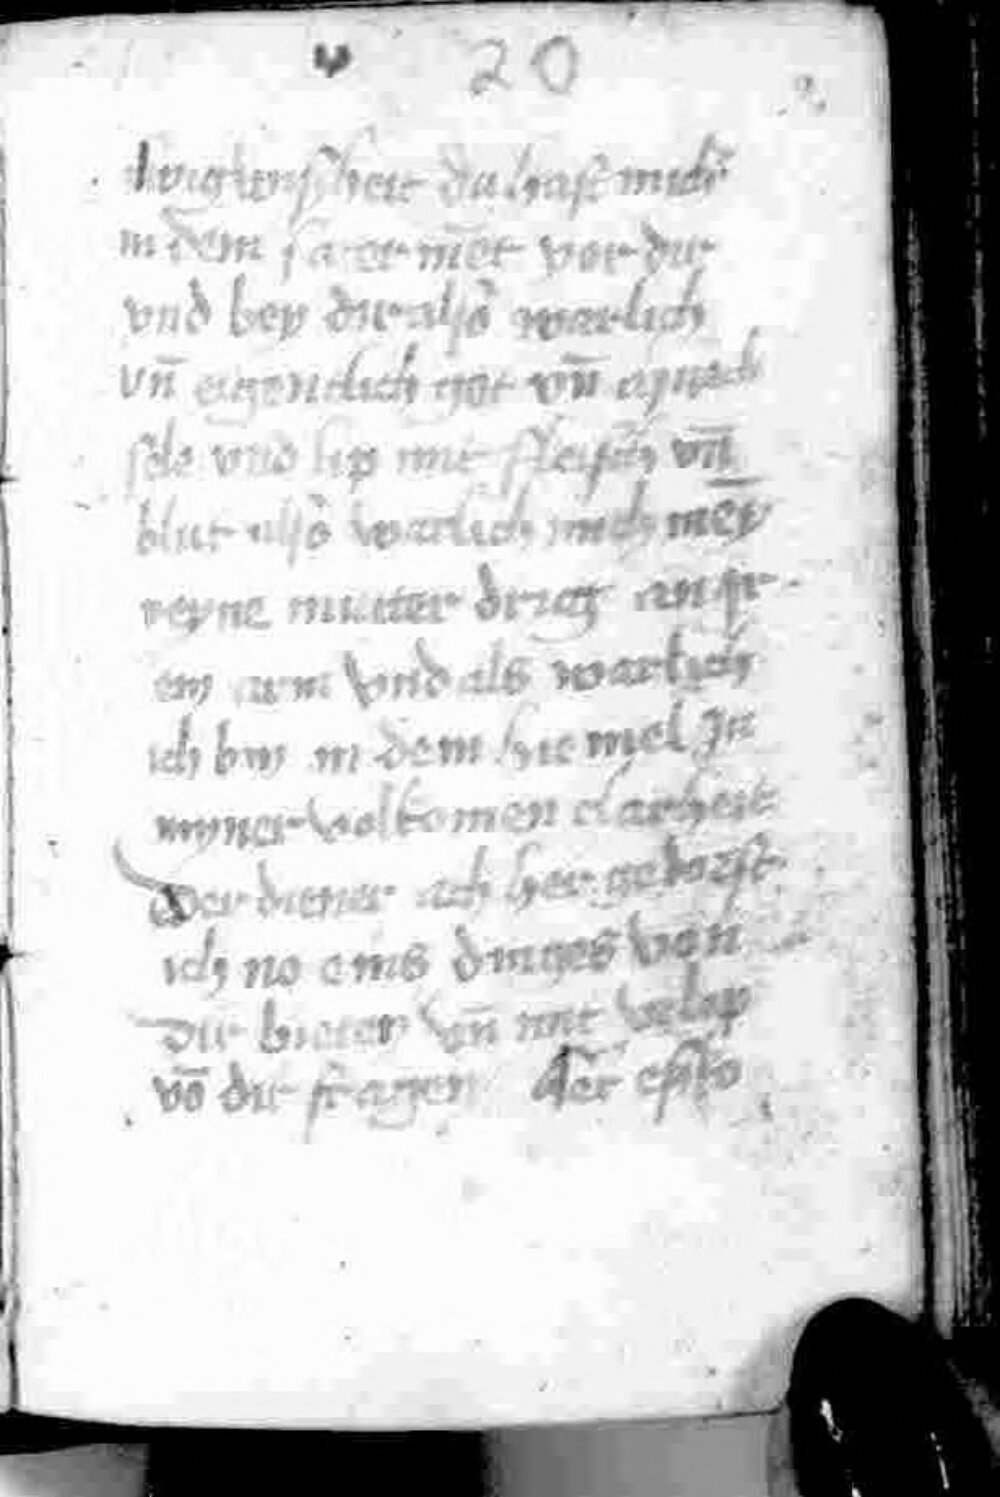 20
du hast mich
in dem sacermēt vor dir
vnd bey dir alsō warlich
vn̄ eigentlich got vn̄ mensch
sele vnd lip mit fleisch vn̄
blut alsō warlich mich mey
reyne muter drug an jr
en arm vnd als warlich
ich bin in dem hiemel in
myner volkomen clarheit
Der diener ach her gedorst
ich no eins dinges von
dir bieten vn̄ mit velop
vō dir fragen